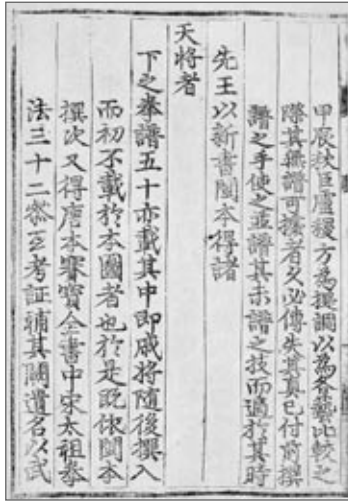 甲辰秋臣盧稷方為提調以為各藝比較之
際其無譜可據者久必傳失其真已付前撰
譜之手使之並譜其未譜之技而適於其時
先王以新書閩本得諸
天將者
下之拳譜五十亦載其中即戚將隨後撰入
而初不載於本國者也於是既依閩本
撰次又得唐本賽寶全書中宋太祖拳
法三十二勢互考証輔其闕遺名以武